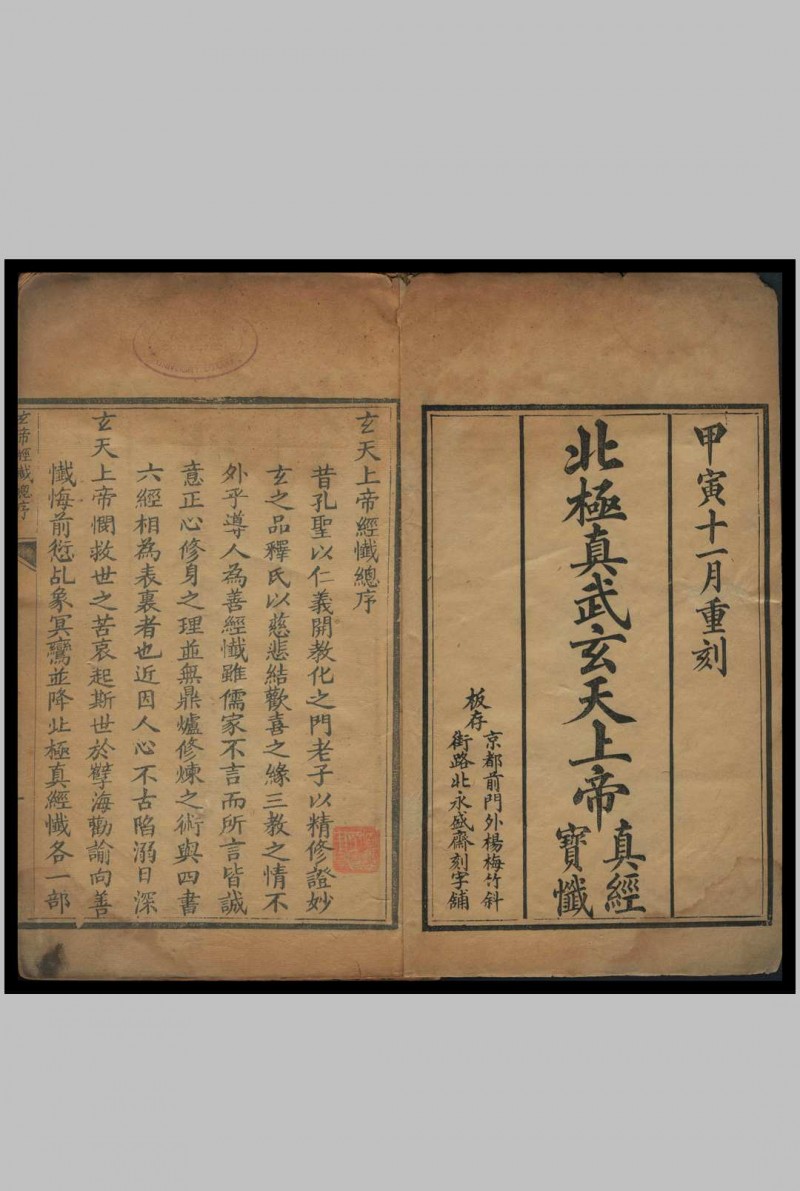 甲寅十一月重刻
北極真武玄天上帝真經
寶懺
板存京都前門外楊梅竹斜
街路北永盛齋刻字舖
玄天上帝經懺總序
昔孔聖以仁義開教化之門老子以精修證妙
玄之品釋氏以慈悲結歡喜之緣三教之情不
外乎導人為善經懺雖儒家不言而所言皆誠
意正心修身之理並無鼎爐修煉之術與四書
六經相為表裏者也近因人心不古陷溺日深
玄天上帝憫救世之苦哀起斯世於孽海勸諭向善
懺悔前愆乩象冥鸞並降北極真經懺各一部
玄帝經懺總序